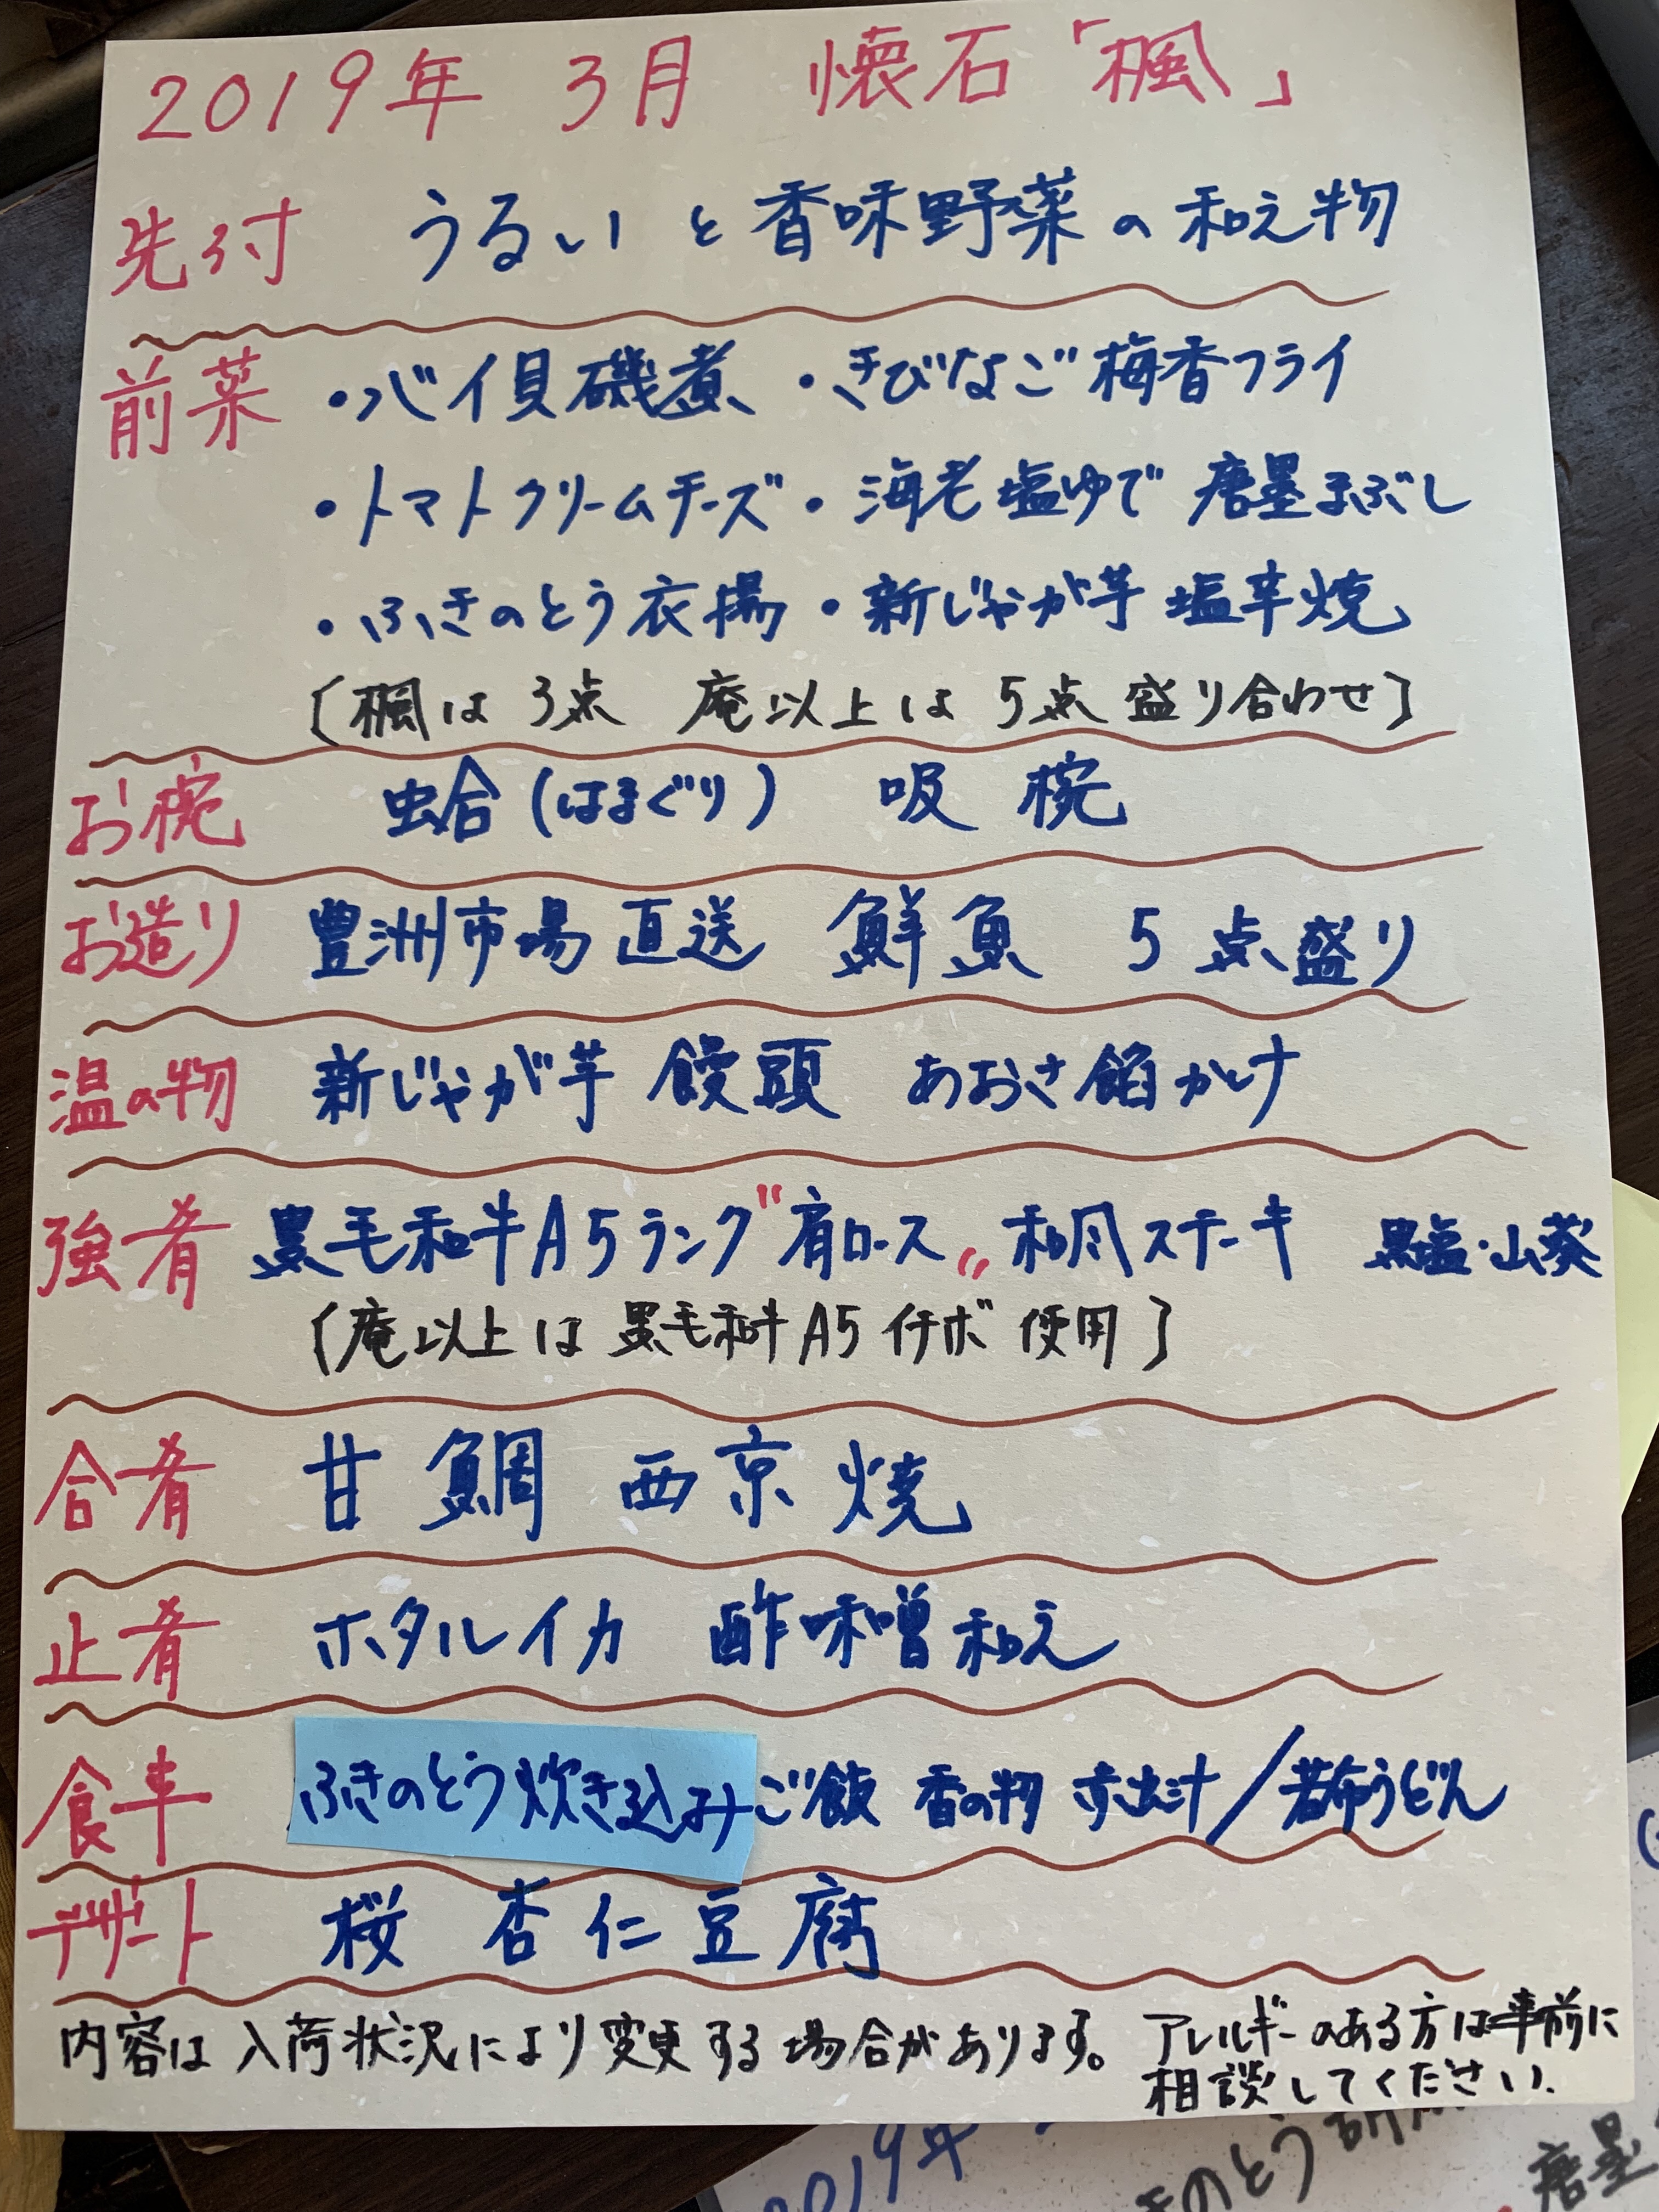 2019年 3月 懐石「楓」
先付 うるいと香味野菜の和え物
前菜 ・バイ貝磯煮 ・きびなご梅香フライ
・トマトクリームチーズ ・海老塩ゆで 唐墨まぶし
・ふきのとう衣揚 ・新じゃが芋 塩辛焼
〔楓は3点 庵以上は5点盛り合わせ〕
お椀 蛤(はまぐり) 吸椀
お造り 豊洲市場直送 鮮魚 5点盛り
温の物 新じゃが芋 饅頭 あおさ餡かけ
強肴 黒毛和牛A5ランク"肩ロース〟和風ステーキ 黒塩・山葵
〔庵以上は黒毛和牛A5イチボ使用〕
合肴 甘鯛西京焼
止肴 ホタルイカ 酢味噌和え
食事 ふきのとう炊き込みご飯 香の物 赤出汁/若布うどん
デザート 桜 杏仁豆腐
内容は入荷状況により変更する場合があります。アレルギーのある方は事前に
相談してください.
2019年
きのとう
唐墨